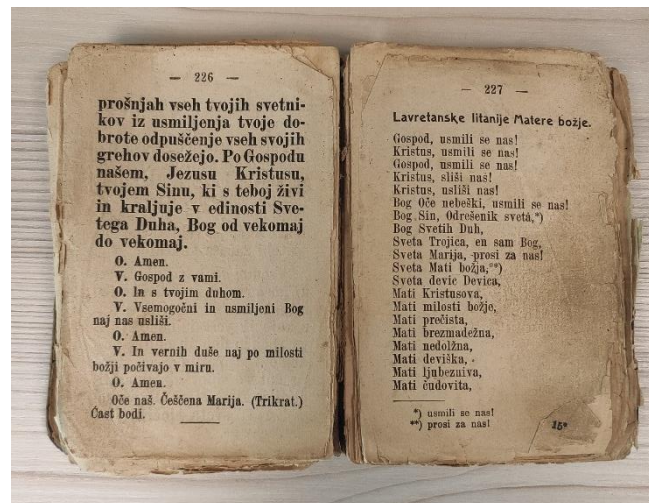 — 226 —
prošnjah vseh tvojih svetni-
kov iz usmiljenja tvoje do-
brote odpuščenje vseh svojih
grehov dosežejo. Po Gospodu
našem, Jezusu Kristusu,
tvojem Sinu, ki s teboj živi
in kraljuje v edinosti Sve-
tega Duha, Bog od vekomaj
do vekomaj.
O. Amen.
V. Gospod z vami.
O. In s tvojim duhom.
V. Vsemogočni in usmiljeni Bog
naj nas usliši.
O. Amen.
V. In vernih duše naj po milosti
božji počivajo v miru.
O. Amen.
Oče naš. Češčena Marija. (Trikrat.)
Čast bodi.
— 227 —
Lavretanske litanije Matere božje.
Gospod, usmili se nas!
Kristus, usmili se nas!
Gospod, usmili se nas!
Kristus, sliši nas!
Kristus, usliši nas!
Bog Oče nebeški, usmili se nas!
Bog Sin, Odrešenik sveta,*)
Bog Svetih Duh,
Sveta Trojica, en sam Bog,
Sveta Marija, prosi za nas!
Sveta Mati božja,**)
Sveta devic Devica,
Mati Kristusova,
Mati milosti božje,
Mati prečista,
Mati brezmadežna,
Mati nedolžna,
Mati deviška,
Mati ljubezniva,
Mati čudovita,
*) usmili se nas!
**) prosi za nas!
15*